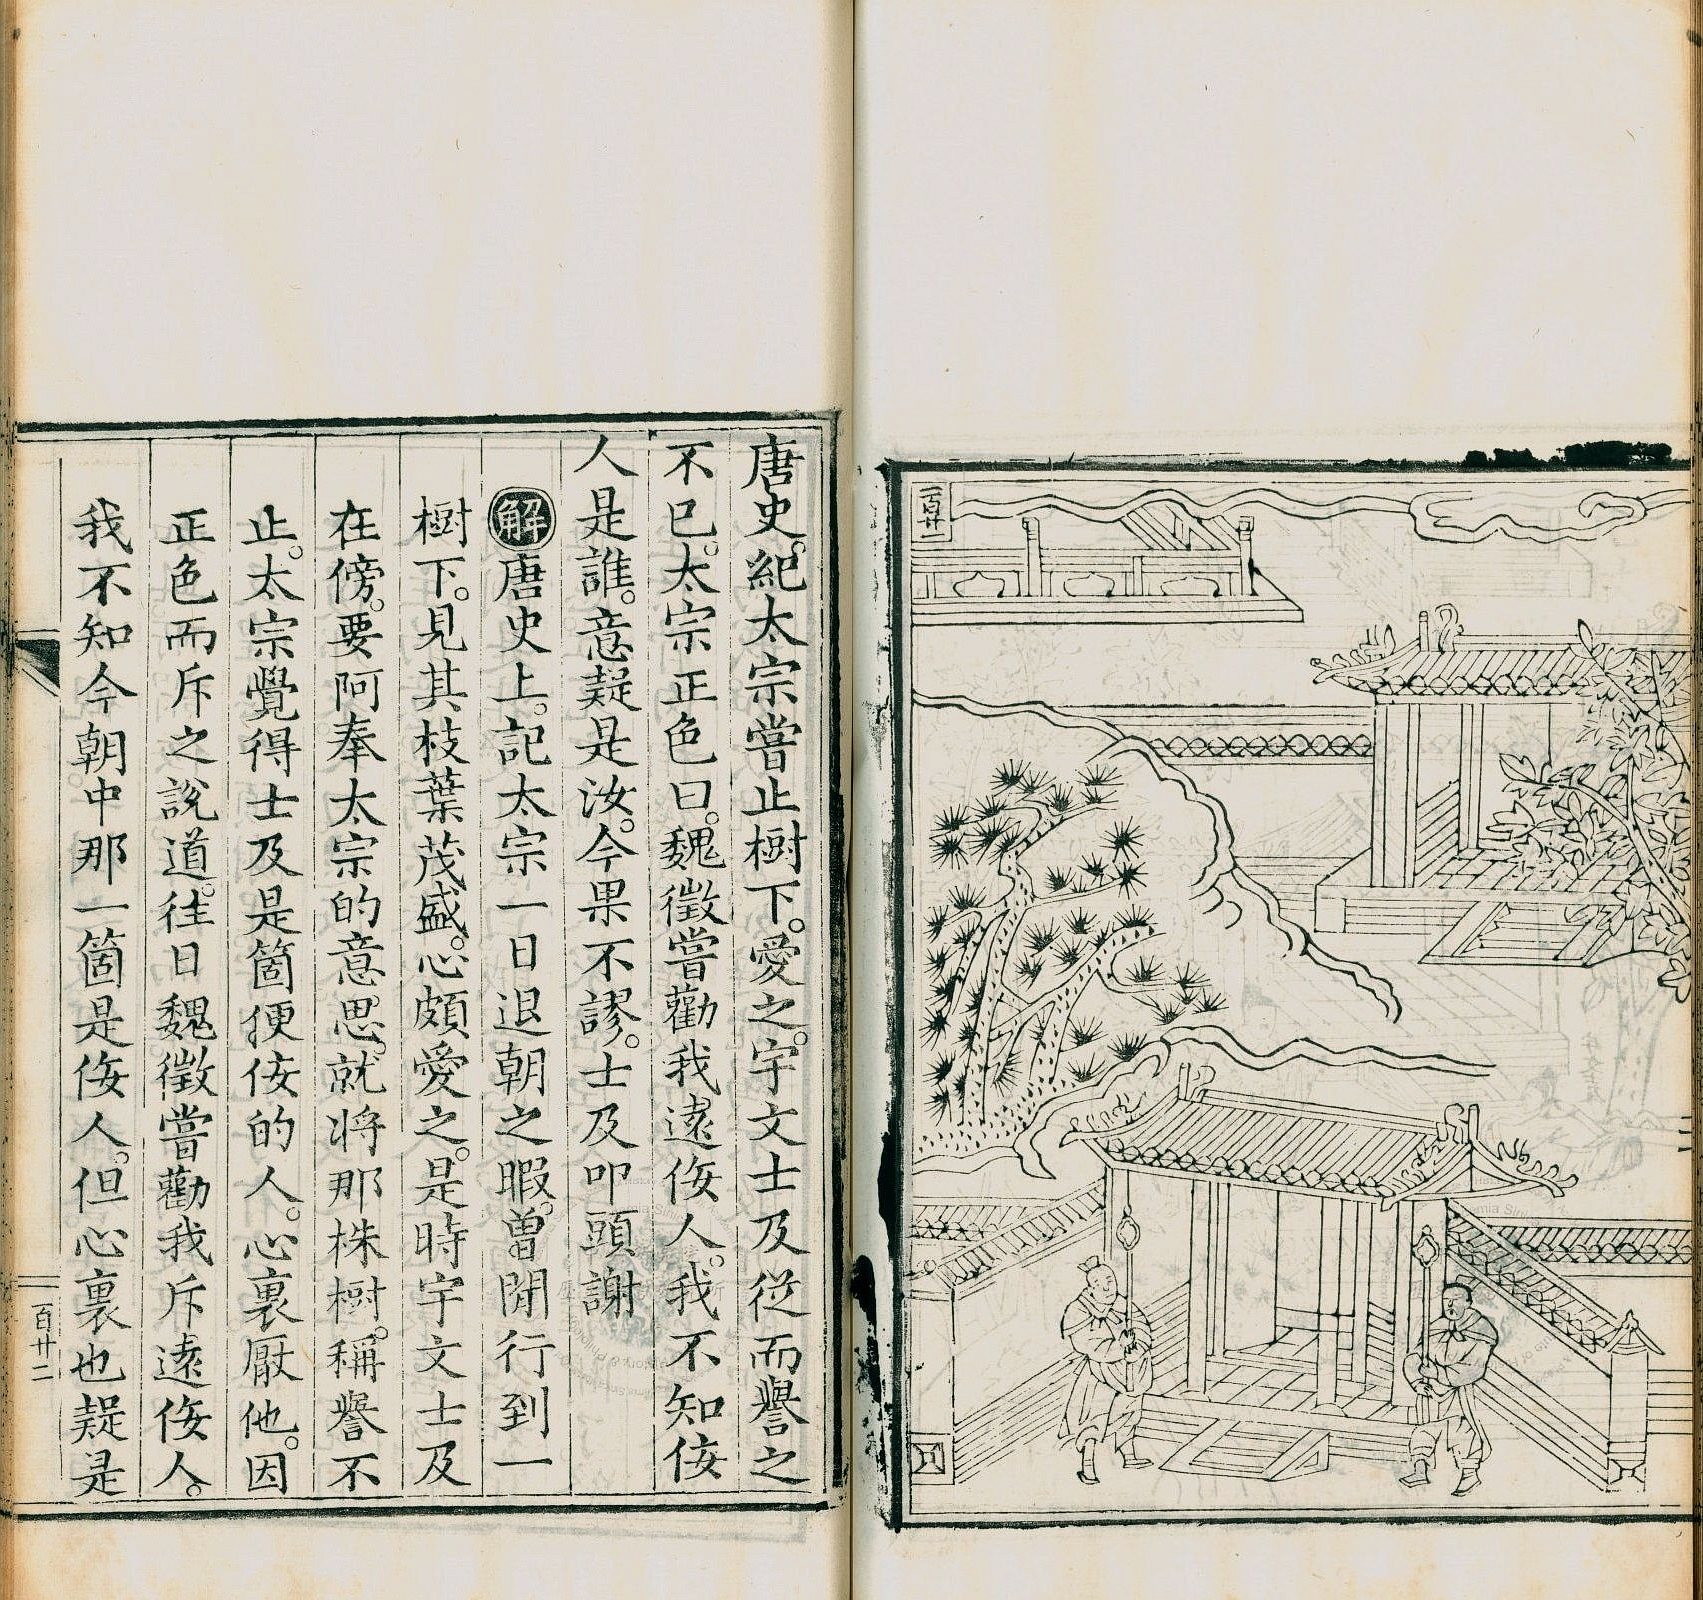 一百廿一
唐史紀太宗嘗止樹下。愛之。宇文士及從而譽之
不已。太宗正色曰。魏徵嘗勸我遠佞人。我不知佞
人是誰。意疑是汝。今果不謬。士及叩頭謝
解唐史上。記太宗一日退朝之暇。曾閒行到一
樹下。見其枝葉茂盛。心頗愛之。是時宇文士及
在傍。要阿奉太宗的意思。就將那株樹。稱譽不
止。太宗覺得士及是箇便佞的人。心裏厭他。因
正色而斥之說道。往日魏徵嘗勸我斥遠佞人。
我不知今朝中那一箇是佞人。但心裏也疑是
百廿二